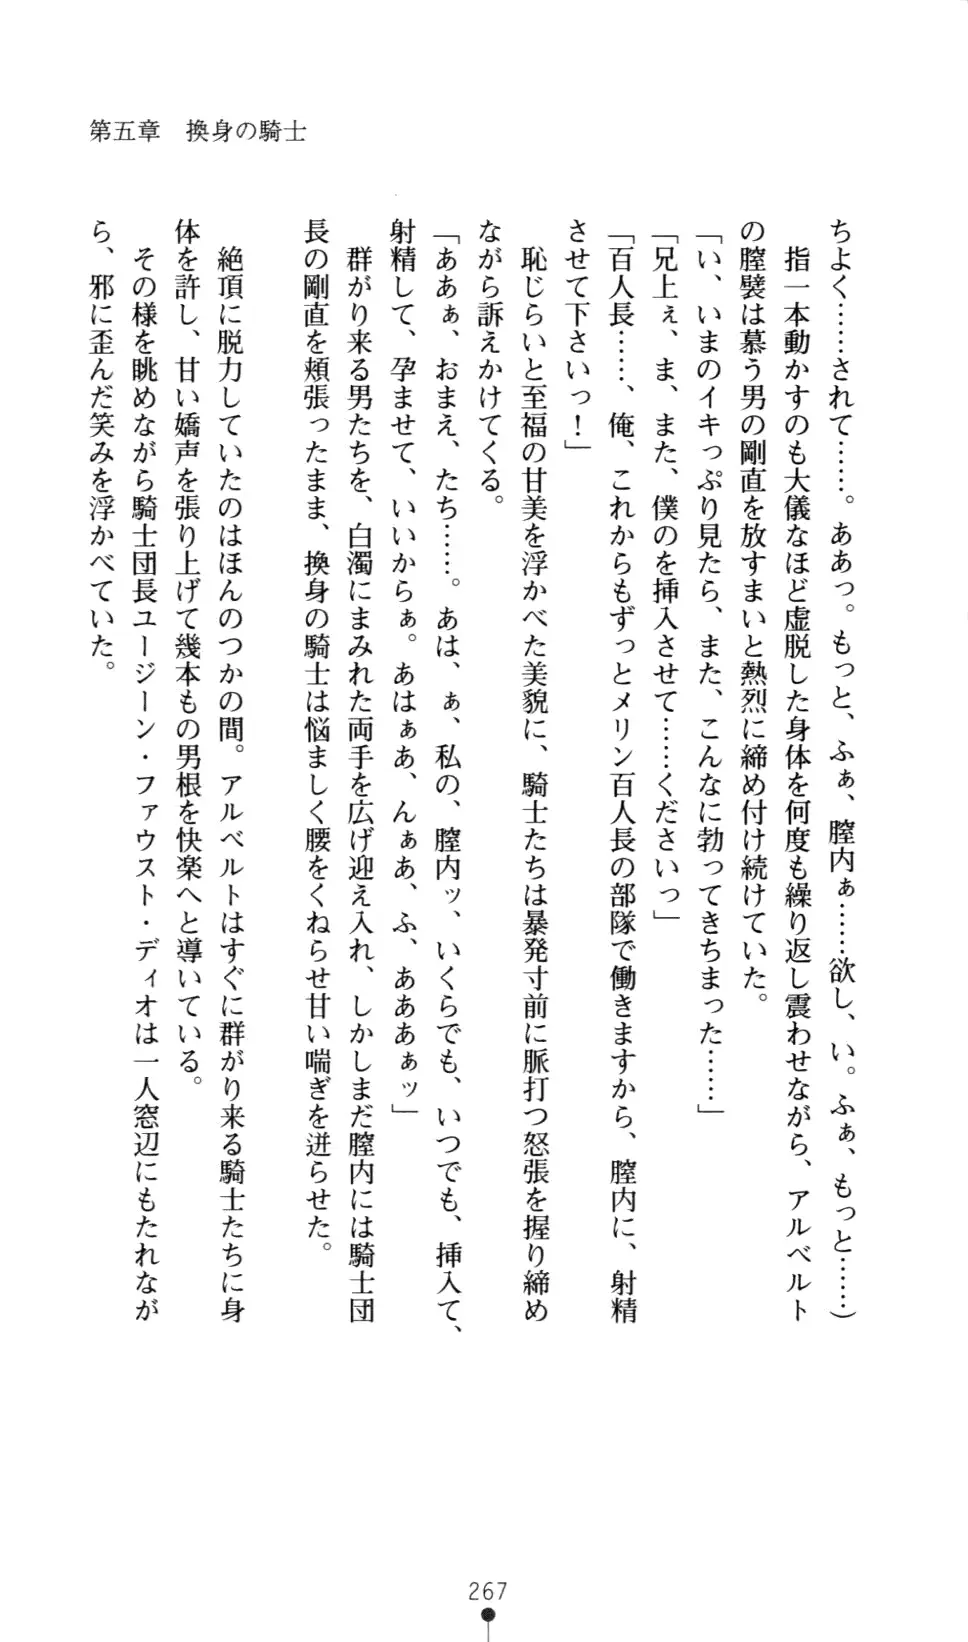 第五章　換身の騎士
ちよく……されて……。ああっ。もっと、ふぁ、膣内ぁ……欲し、い。ふぁ、もっと……）
　指一本動かすのも大儀なほど虚脱した身体を何度も繰り返し震わせながら、アルベルト
の膣襞は慕う男の剛直を放すまいと熱烈に締め付け続けていた。
「い、いまのイキっぷり見たら、また、こんなに勃ってきちまった……」
「兄上ぇ、ま、また、僕のを挿入させて……くださいっ」
「百人長……、俺、これからもずっとメリン百人長の部隊で働きますから、膣内に、射精
させて下さいっ！」
　恥じらいと至福の甘美を浮かべた美貌に、騎士たちは暴発寸前に脈打つ怒張を握り締め
ながら訴えかけてくる。
「ああぁ、おまえ、たち……。あは、ぁ、私の、膣内ッ、いくらでも、いつでも、挿入て、
射精して、孕ませて、いいからぁ。あはぁあ、んぁあ、ふ、あああぁッ」
　群がり来る男たちを、白濁にまみれた両手を広げ迎え入れ、しかしまだ膣内には騎士団
長の剛直を頬張ったまま、換身の騎士は悩ましく腰をくねらせ甘い喘ぎを迸らせた。
　絶頂に脱力していたのはほんのつかの間。アルベルトはすぐに群がり来る騎士たちに身
体を許し、甘い嬌声を張り上げて幾本もの男根を快楽へと導いている。
　その様を眺めながら騎士団長ユージーン・ファウスト・ディオは一人窓辺にもたれなが
ら、邪に歪んだ笑みを浮かべていた。
267